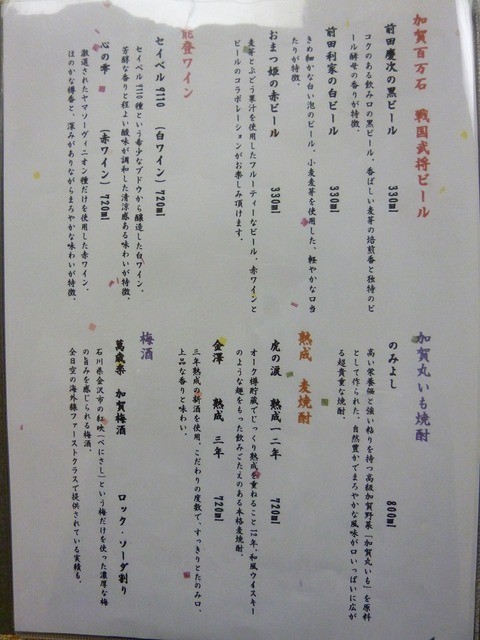 加賀百万石　戦国武将ビール
前田慶次の黒ビール　330ml
コクのある飲み口の黒ビール。香ばしい麦芽の焙煎香と独特のビ
ール酵母の香りが特徴。
前田利家の白ビール　330ml
きめ細かな白い泡のビール。小麦麦芽を使用した、軽やかな口当
たりが特徴。
おまつ姫の赤ビール　330ml
麦芽とぶどう果汁を使用したフルーティーなビール。赤ワインと
ビールのコラボレーションがお楽しみ頂けます。
能登ワイン
セイベル 9110　（白ワイン）720ml
セイベル 9110 種という希少なブドウから醸造した白ワイン。
芳醇な香りと程よい酸味が調和した清涼感ある味わいが特徴。
心の雫　（赤ワイン）720ml
厳選されたヤマソーヴィニオン種だけを使用した赤ワイン。
ほのかな樽香と、深みがありながらまろやかな味わいが特徴。
加賀丸いも焼酎
のみよし　800ml
高い栄養価と強い粘りを持つ高級加賀野菜「加賀丸いも」を原料
として作られた、自然豊かでまろやかな風味が口いっぱいに広が
る超貴重な焼酎。
熟成　麦焼酎
虎の涙　熟成一二年　720ml
オーク樽貯蔵でじっくり熟成を重ねること12年。和風ウイスキー
のような趣をもった飲みごたえのある本格麦焼酎。
金澤　熟成　三年　720ml
三年熟成の原酒を使用。こだわりの度数で、すっきりとたのみ口、
上品な香りと味わい。
梅酒
萬歳楽　加賀梅酒　ロック・ソーダ割り
石川県金沢市の紅映（べにさし）という梅だけを使った濃厚な梅
の旨みを感じられる梅酒。
全日空の海外線ファーストクラスで提供されている実績も。